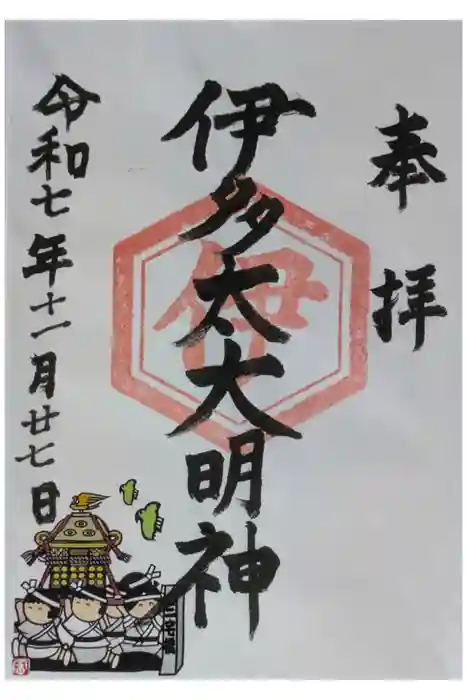 奉拝
伊多太大明神
伊
令和七年十一月廿七日